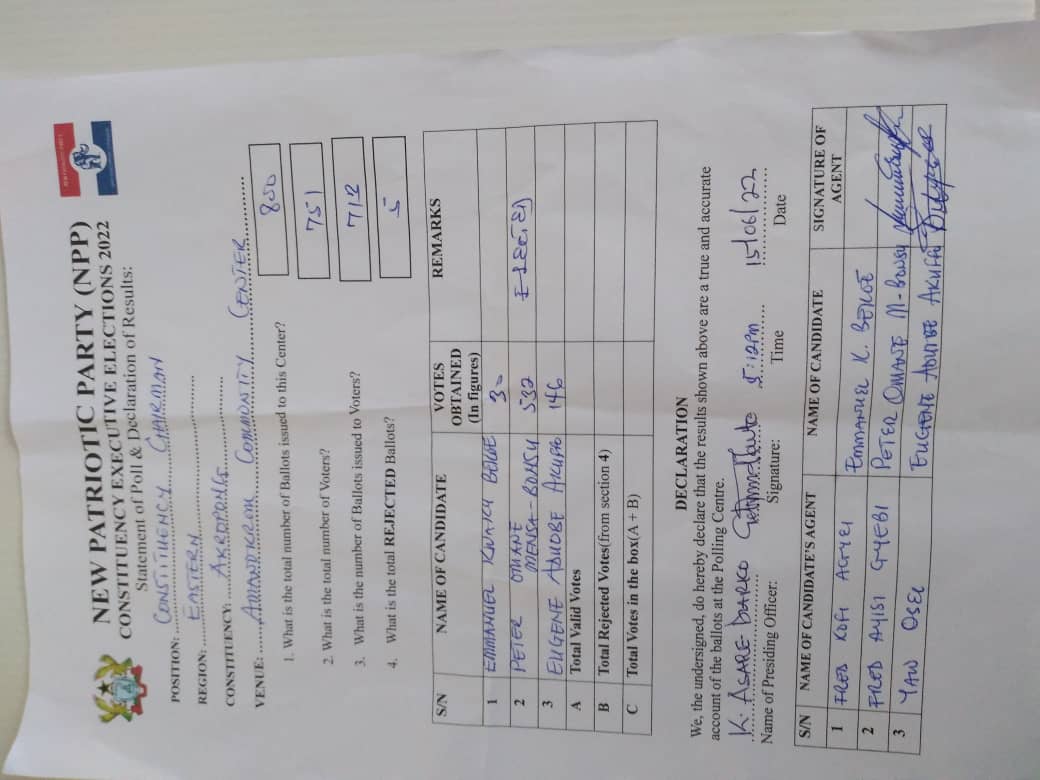 NEW PATRIOTIC PARTY (NPP)
CONSTITUENCY EXECUTIVE ELECTIONS 2022
Statement of Poll & Declaration of Results:
POSITION: CONSTITUENCY CHAIRMAN
REGION: EASTERN
CONSTITUENCY: AKROPONG
VENUE: AMANOKROM COMMUNITY CENTER
1. What is the total number of Ballots issued to this Center? 800
2. What is the total number of Voters? 751
3. What is the number of Ballots issued to Voters? 712
4. What is the total REJECTED Ballots? 5
S/N NAME OF CANDIDATE VOTES OBTAINED (In figures) REMARKS
1 EMMANUEL KWAKU BEKOE 30
2 PETER OMANE MENSA-BONSU 532 ELECTED
3 EUGENE ADUOBE AKUFFO 146
A Total Valid Votes
B Total Rejected Votes(from section 4)
C Total Votes in the box(A + B)
DECLARATION
We, the undersigned, do hereby declare that the results shown above are a true and accurate
account of the ballots at the Polling Centre.
K. ASARE DARKO 5:12pm 15/06/22
Name of Presiding Officer: Signature: Time Date
S/N NAME OF CANDIDATE'S AGENT NAME OF CANDIDATE SIGNATURE OF AGENT
1 FRED KOFI AGYEI EMMANUEL K. BEKOE
2 FRED AYISI GYEBI PETER OMANE M-BONSU
3 YAW OSEI EUGENE